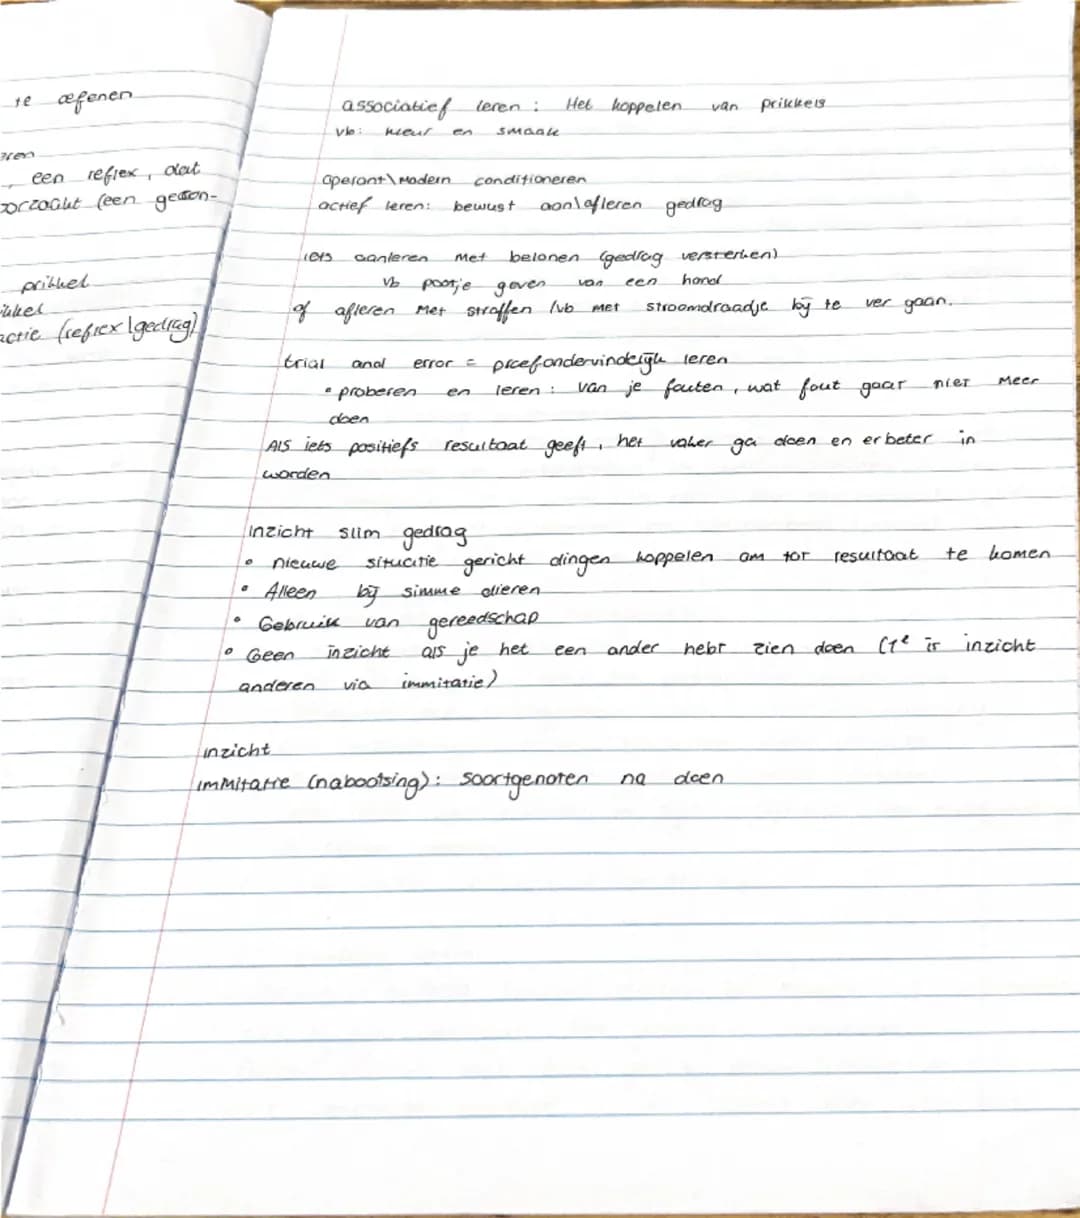 te oefenen
een reflex, dat
prikkel
actie (reflex \ gedrag)
associatief leren : Het koppelen van prikkels
vb: kleur en smaak
operant \ Modern conditioneren
actief leren: bewust aan\afleren gedrag
iets aanleren met belonen (gedrag versterken)
vb pootje geven van een hond
of afleren Met straffen /vb met stroomdraadje bij te ver gaan.
trial and error = proefondervindelijk leren
• proberen en leren : van je fouten, wat fout gaat niet Meer
doen
Als iets positiefs resultaat geeft, het vaker ga doen en er beter in
worden
inzicht slim gedrag
• nieuwe situatie gericht dingen koppelen om tot resultaat te komen
• Alleen bij simme dieren
• Gebruik van gereedschap
• Geen inzicht als je het een ander hebt zien doen (1e is inzicht
anderen via immitatie)
inzicht
immitatie (nabootsing): Soortgenoten na doen